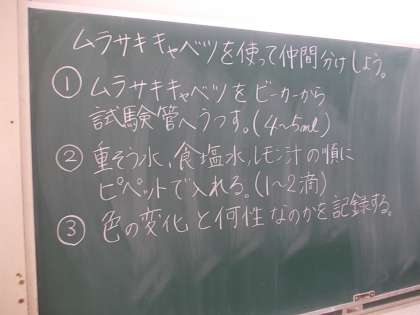 ムラサキキャベツを使って仲間分けしよう。
① ムラサキキャベツをビーカーから
試験管へうつす。(4~5ml)
② 重そう水、食塩水、レモン汁の順に
ピペットで入れる。(1~2滴)
③ 色の変化と何性なのかを記録する。